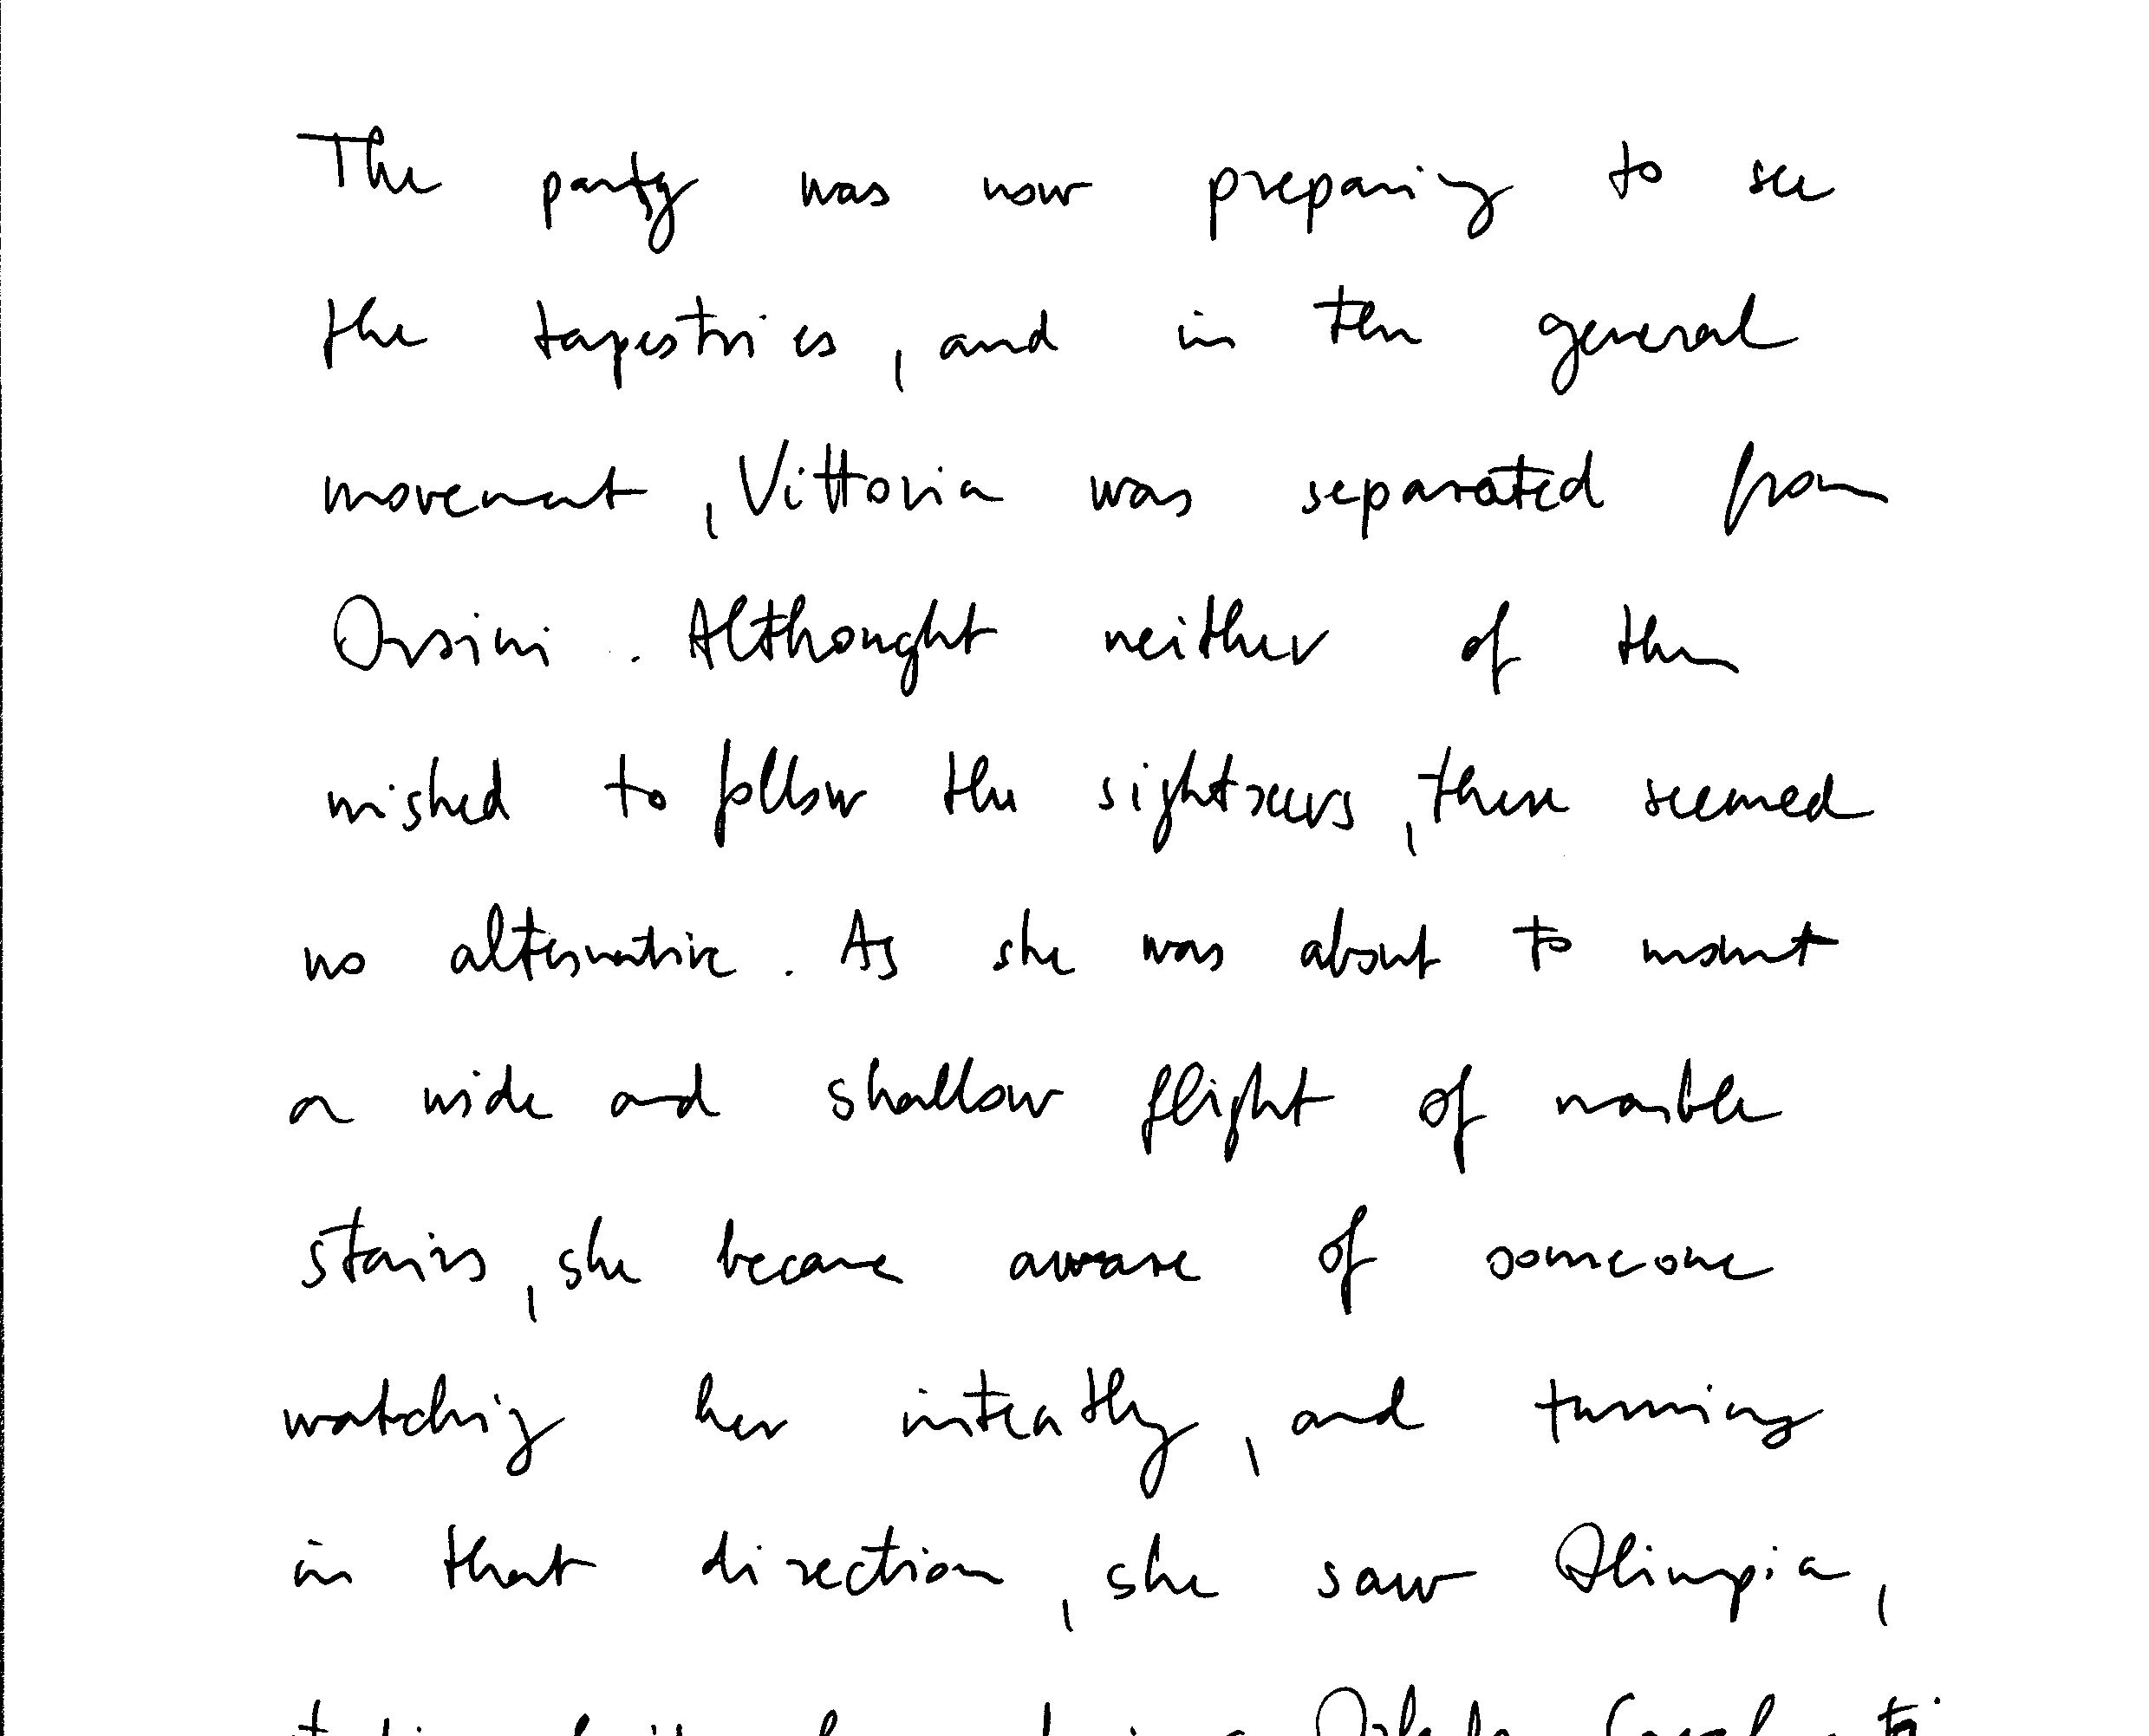 The party was now preparing to see
the tapestries, and in the general
movement, Vittoria was separated from
Orsini. Althought neither of them
wished to follow the sightseers, there seemed
no alternative. As she was about to mount
a wide and shallow flight of marble
stairs, she became aware of someone
watching her intently, and turning
in that direction, she saw Olimpia,